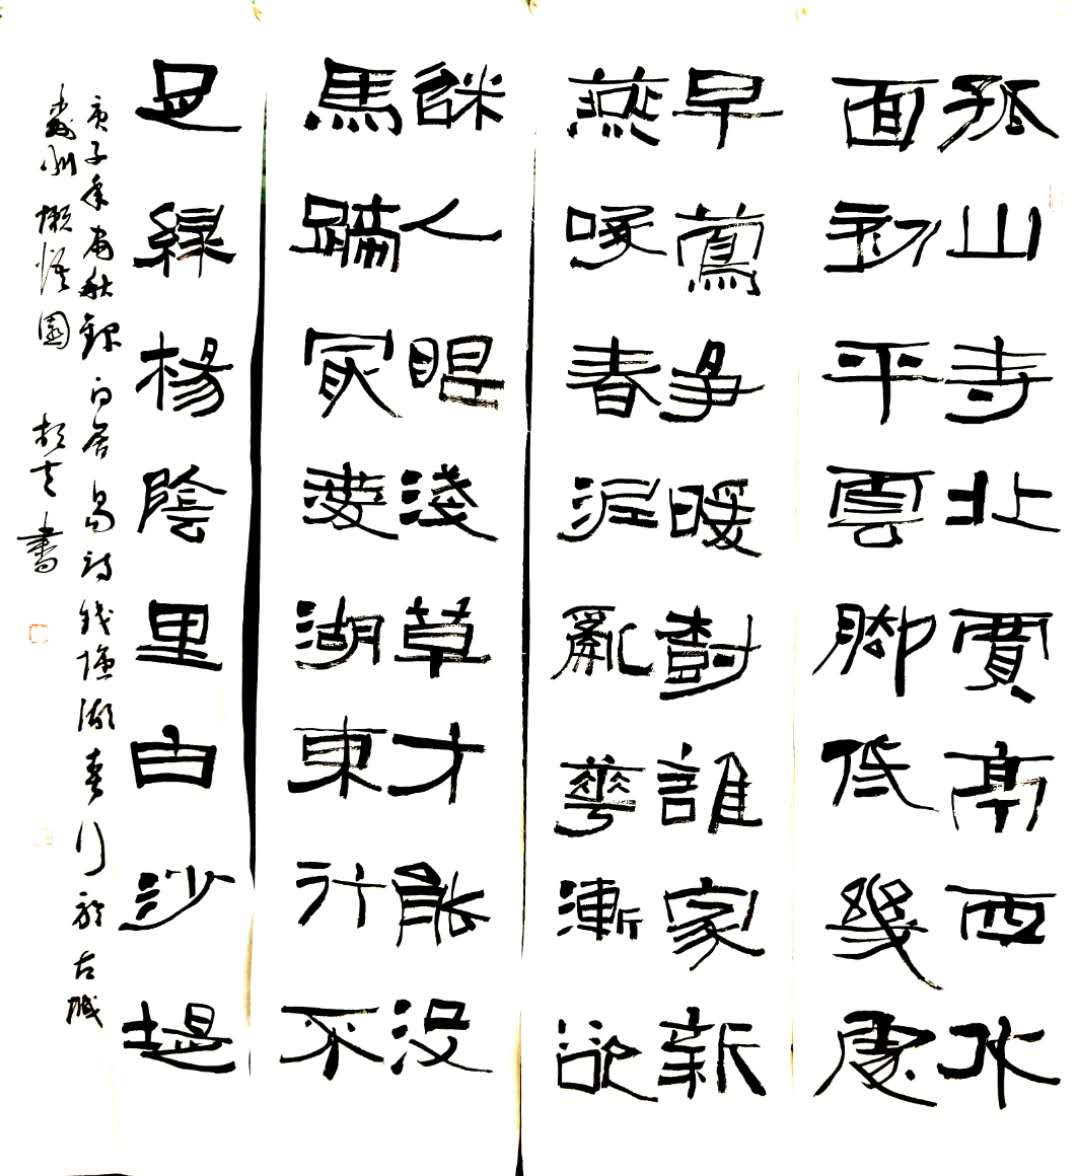 孤山寺北賈亭西水
面初平雲脚低幾處
早鶯爭暖樹誰家新
燕啄春泥亂華漸欲
詸人眼淺草才能没
馬蹄冣愛湖東行不
足緑楊陰里白沙堤
庚子年秋錄白居易詩钱塘湖春行於古城
州懒悟園 書